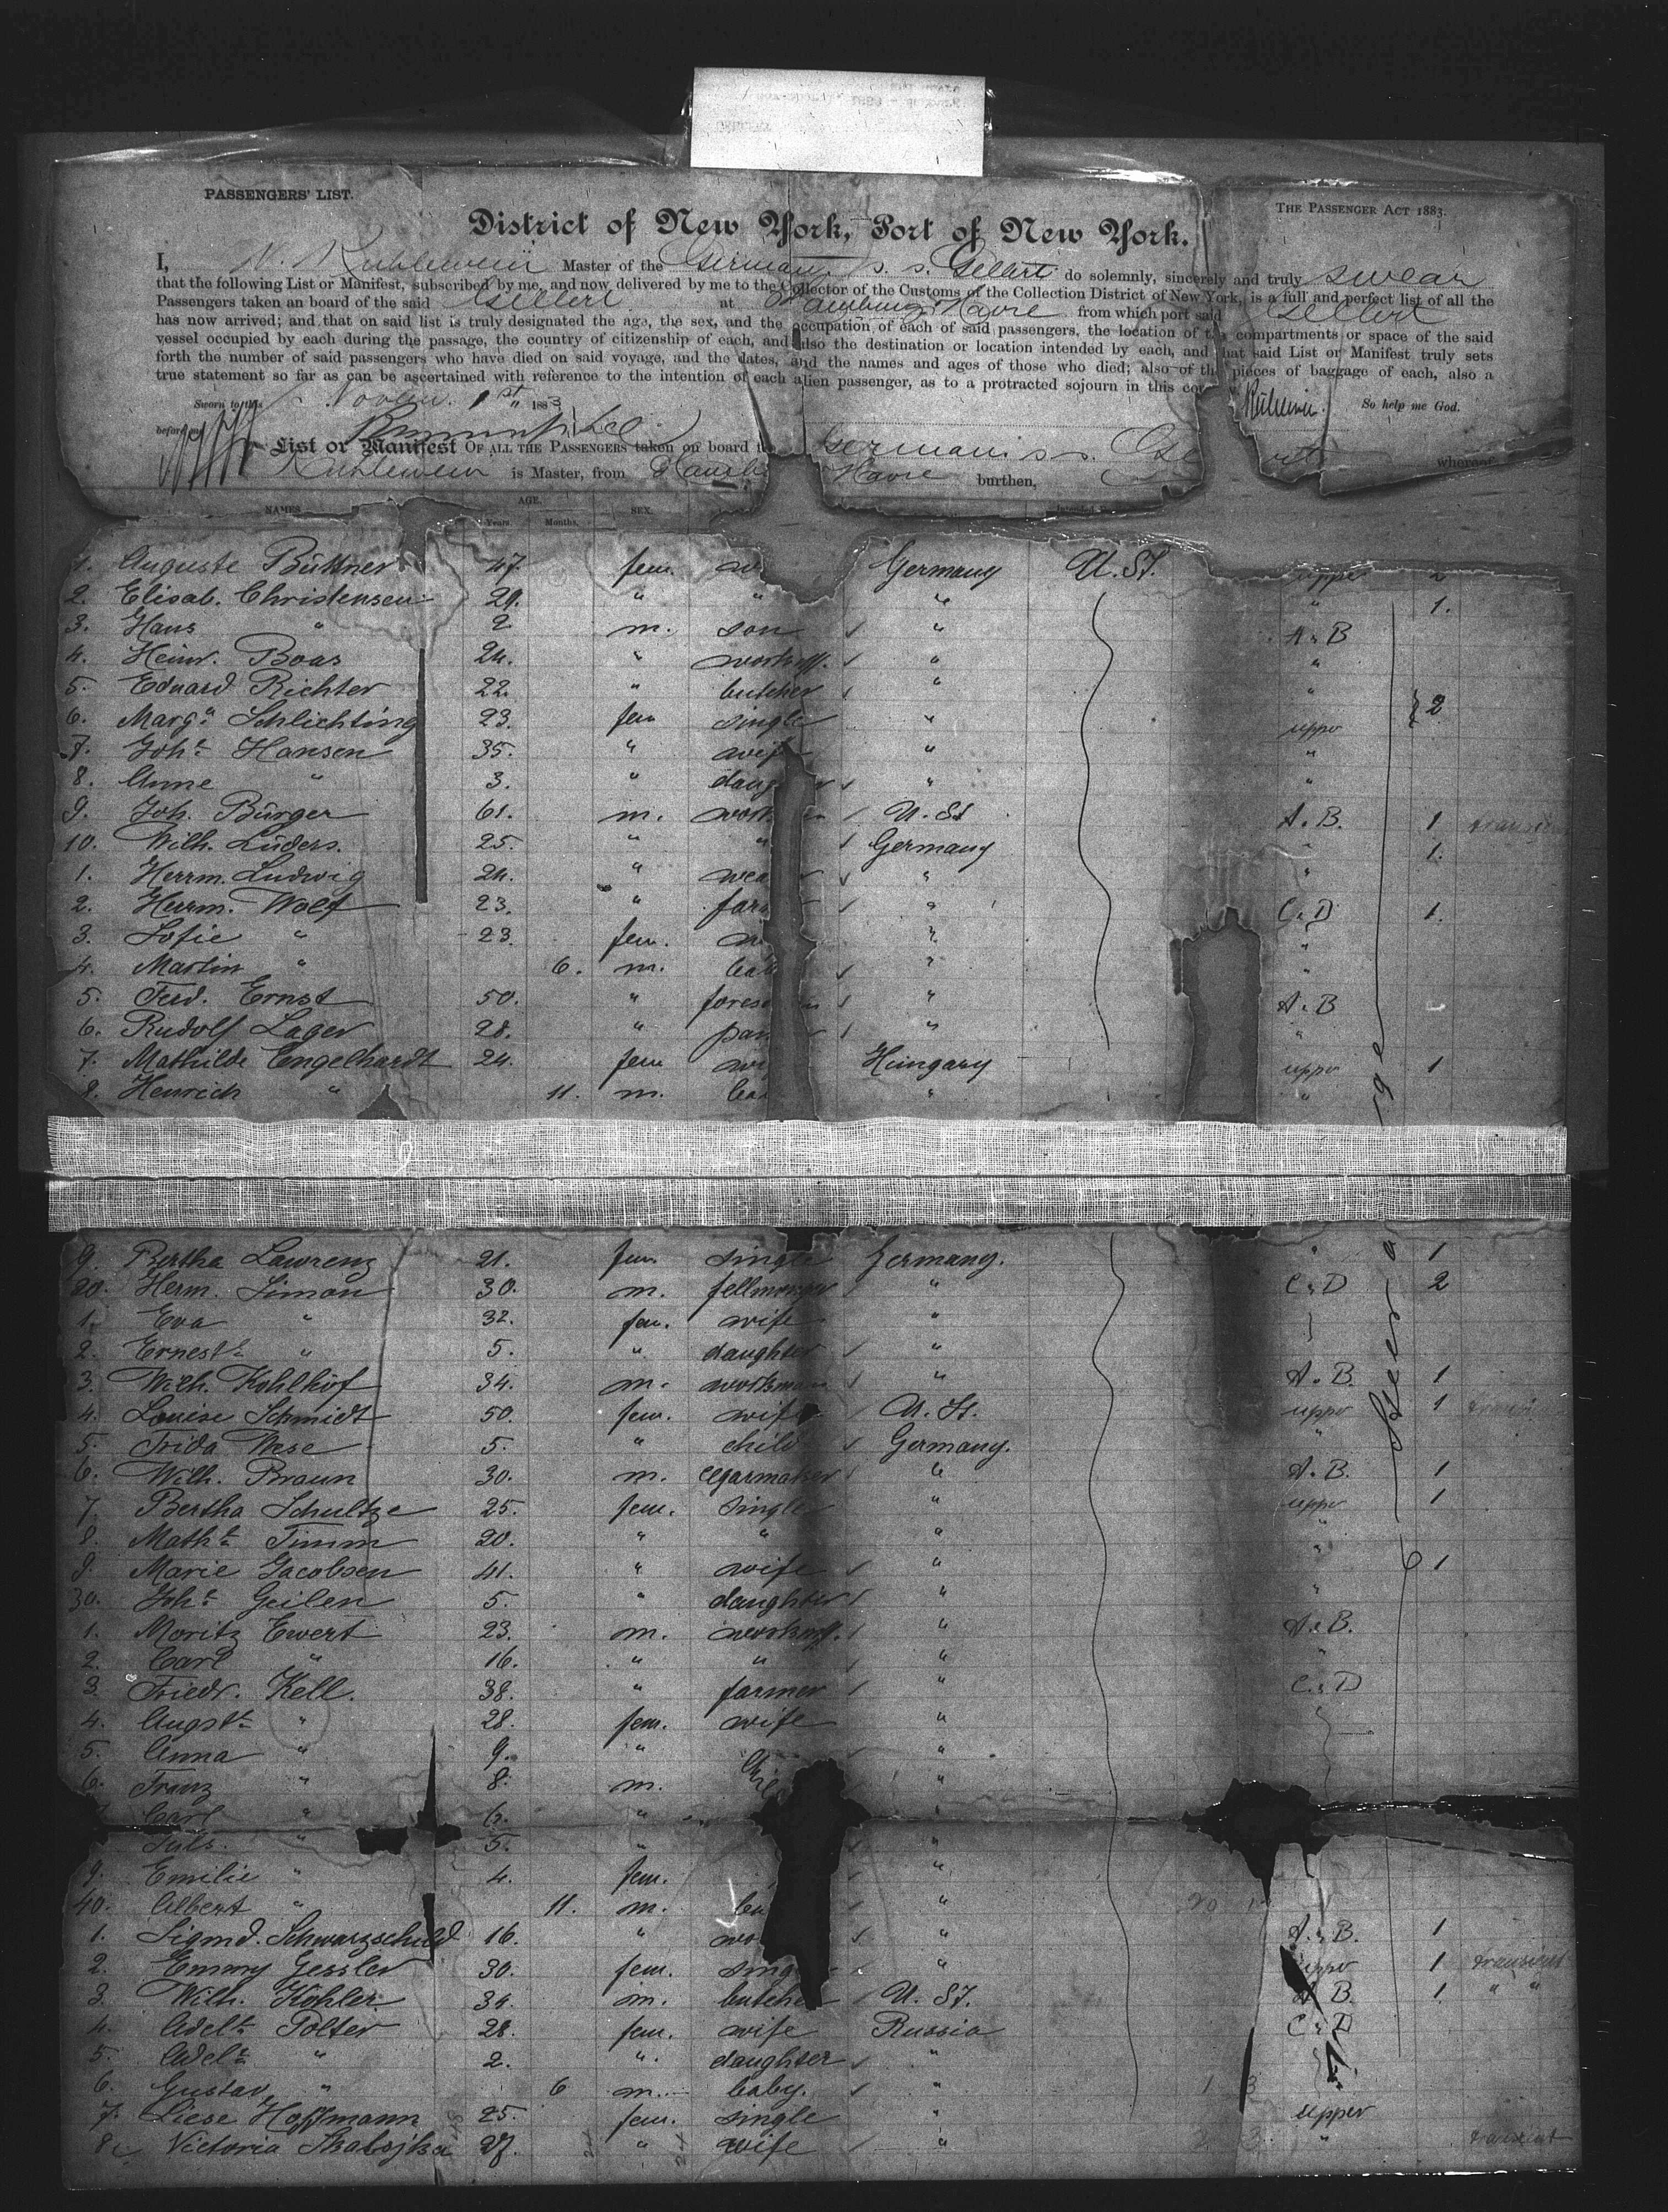 PASSENGERS' LIST.
THE PASSENGER ACT 1883.
District of New York, Port of New York.
I, Kuhlewein Master of the German s. s. Gellert do solemnly, sincerely and truly swear
that the following List or Manifest, subscribed by me, and now delivered by me to the Collector of the Customs of the Collection District of New York, is a full and perfect list of all the
Passengers taken on board of the said Gellert at Hamburg Havre from which port said Gellert
has now arrived; and that on said list is truly designated the age, the sex, and the occupation of each of said passengers, the location of the compartments or space of the said
vessel occupied by each during the passage, the country of citizenship of each, and also the destination or location intended by each, and that said List or Manifest truly sets
forth the number of said passengers who have died on said voyage, and the dates, and the names and ages of those who died; also of the pieces of baggage of each, also a
true statement so far as can be ascertained with reference to the intention of each alien passenger, as to a protracted sojourn in this
Sworn to this 1st 188 So help me God.
before
List or Manifest OF ALL THE PASSENGERS taken on board German s. s.
Kuhlewein is Master, from Havre burthen, whereof
NAMES AGE. SEX.
Years. Months.
1. Auguste Büttner 47. fem. Germany U. St. upper 2
2. Elisab. Christensen 29. " " " " 1.
3. Hans " 2 m. son " A. B
4. Heinr. Boas 24. " " "
5. Eduard Richter 22. " butcher " " 2
6. Marga Schlichting 23. fem single " upper
7. Joh.e Hansen 35. " wife " "
8. Anne " 3. " " "
9. Joh. Bürger 61. m. U. St A. B. 1
10. Wilh. Lüders. 25. " " Germany " 1.
1. Herrm. Ludwig 24. " " "
2. Herrm. Wolf 23. " " C. D 1.
3. Sofie " 23. fem. " "
4. Martin " 6. m. " "
5. Ferd. Ernst 50. " " A. B
6. Rudolf Lager 28. " " "
7. Mathilde Engelhardt 24. fem Hungary upper 1
8. Henrich " 11. m. " "
9. Bertha Lawrenz 21. fem. single Germany. " 1
20. Herm. Simon 30. m. fellmonger " C. D 2
1. Eva " 32. fem. wife "
2. Ernest.e " 5. " daughter "
3. Wilh. Kohlhof 34. m. workman " A. B. 1
4. Louise Schmidt 50. fem. wife U. St. upper 1
5. Frida Wese 5. " child Germany. "
6. Wilh. Braun 30. m. cigarmaker " A. B. 1
7. Bertha Schultze 25. fem. single " upper 1
8. Math.e Timm 20. " " " "
9. Marie Jacobsen 41. " wife " 1
30. Joh.e Geilen 5. " daughter " "
1. Moritz Ewert 23. m. " A. B.
2. Carl " 16. " " " "
3. Friedr. Kell. 38. " farmer " C. D
4. Augst.e " 28. fem. wife "
5. Anna " 9. " "
6. Franz " 8. m. "
Carl " 6. " "
Juls. " 5. " "
9. Emilie " 4. fem. "
40. Albert " 11. m. "
1. Sigmd. Schwarzschild 16. " " A. B. 1
2. Emmy Gessler 30. fem. single " upper 1 transient
3. Wilh. Kohler 34. m. butcher U. St. A B. 1 " "
4. Adel.e Polter 28. fem. wife Russia C. D
5. Adel.e " 2. " daughter "
6. Gustav " 6 m. baby. "
7. Liese Hoffmann 25. fem. single " upper
8. Victoria Skabojka 27. " wife " " transient
Steerage